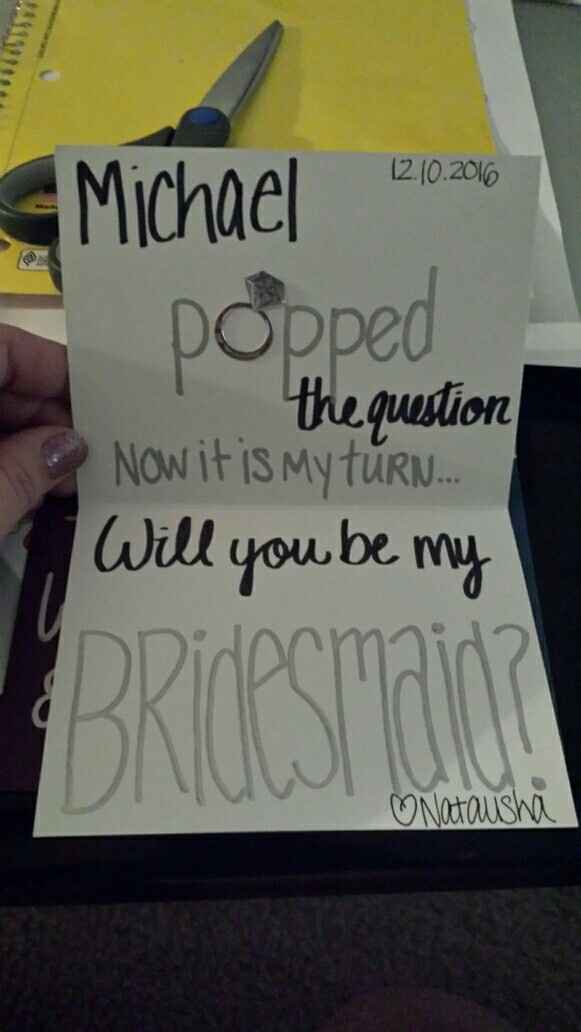 Michael
12.10.2016
popped
the question
Now it is my turn...
Will you be my
Bridesmaid?
♡Natausha